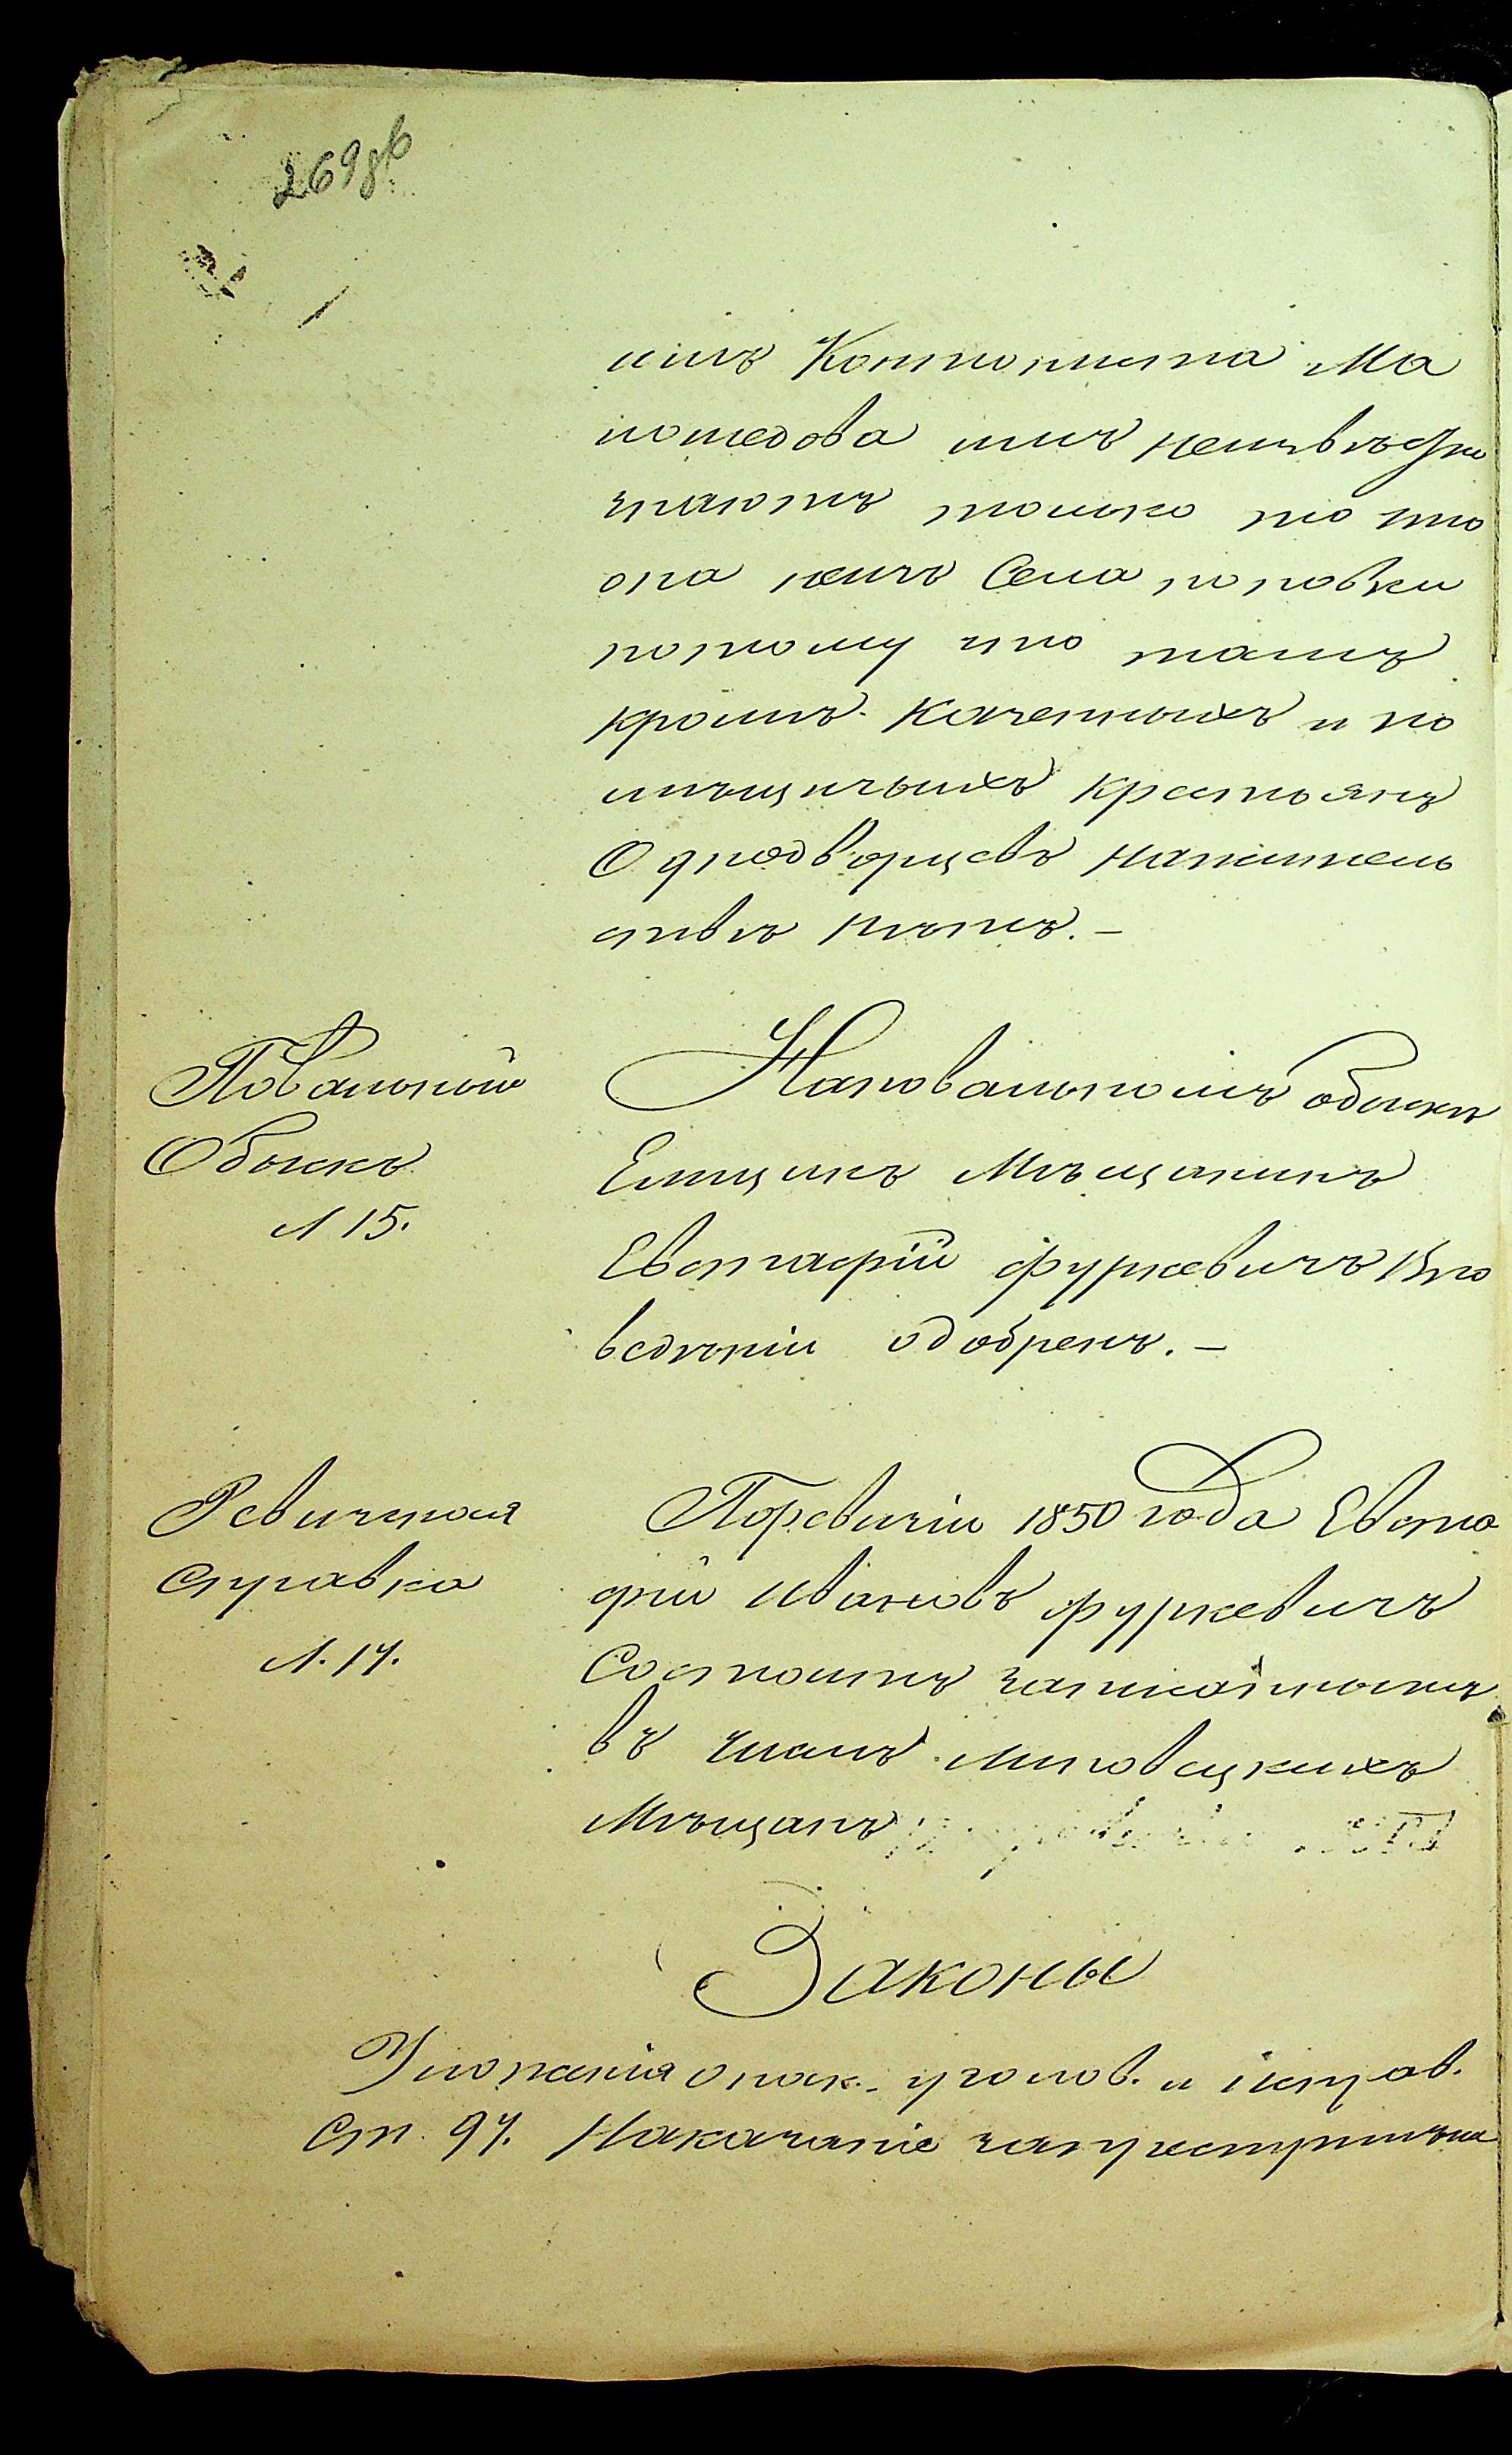 269 об
имъ Ма
им неизвѣстно
знаютъ только то что
она неизъ Села поповки
потому что тамъ
кромѣ казенныхъ и по
мѣщичьихъ крестьянъ
Однодворцевъ нажитель
ствѣ нѣтъ. –
Повальный
Обыскъ
Л 15.
Наповальномъ обыскѣ
Мѣщанинъ
Евстафій Фуркевичъ впо
веденіи одобренъ. –
Ревизская
справка
Л. 17.
Поревизіи 1850 года Евста
фій Ивановъ Фуркевичъ
Состоитъ записаннымъ
въ числѣ липовецкихъ
Мѣщанъ
Законы
Уложенія о нак. уголов. и исправ.
Ст. 97. Наказаніе запреступленія